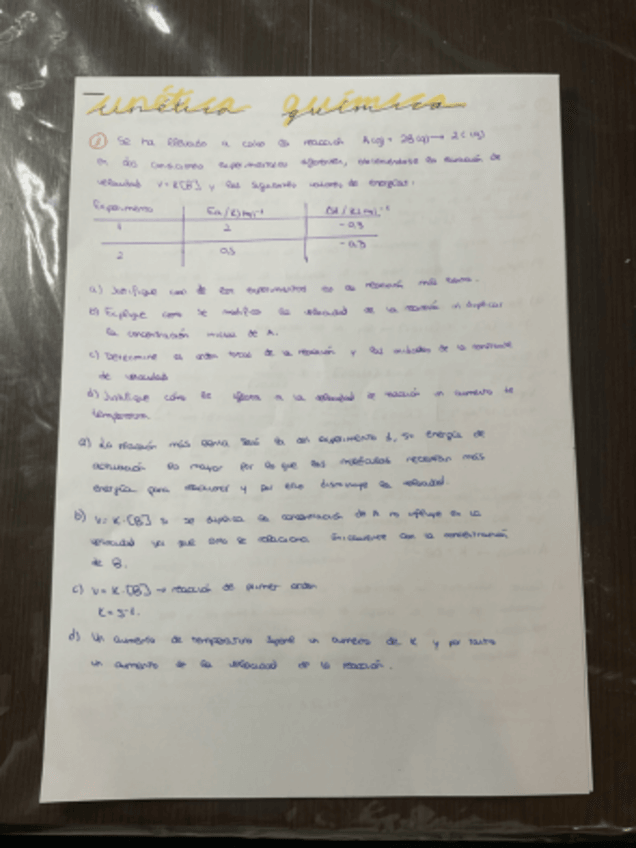 Cinética química
① Se ha llevado a cabo la reacción A(g) + 2B(g) → 2C(g)
en dos condiciones experimentales diferentes, obteniéndose la ecuación de
velocidad v=K[B] y los siguientes valores de energías:
Experimento Ea/KJmol⁻¹ ΔH/KJmol⁻¹
1 2 -0,3
2 0,5 -0,3
a) Justifique cual de los experimentos es la reacción más lenta.
b) Explique como se modifica la velocidad de la reacción al duplicar
la concentración inicial de A.
c) Determine el orden total de la reacción y las unidades de la constante
de velocidad
d) Justifique cómo le afecta a la velocidad de reacción un aumento de
temperatura.
a) La reacción más lenta será la del experimento 1, su energía de
activación es mayor por lo que las moléculas necesitan más
energía para reaccionar y por ello disminuye la velocidad.
b) v=K·[B] si se duplica la concentración de A no influye en la
velocidad ya que esta se relaciona únicamente con la concentración
de B.
c) v=K·[B] → reacción de primer orden
K=s-1.
d) Un aumento de temperatura supone un aumento de K y por tanto
un aumento de la velocidad de la reacción.